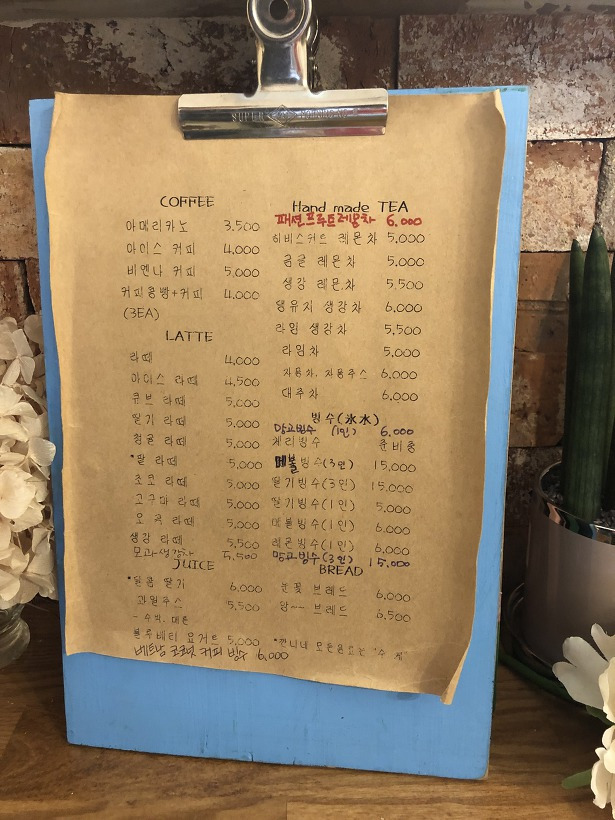 SUPER
COFFEE
아메리카노 3,500
아이스 커피 4,000
비엔나 커피 5,000
커피콩빵+커피 4,000
(3EA)
LATTE
라떼 4,000
아이스 라떼 4,500
큐브 라떼 5,000
딸기 라떼 5,000
청콩 라떼 5,000
*팥 라떼 5,000
초코 라떼 5,000
고구마 라떼 5,000
오곡 라떼 5,000
생강 라떼 5,500
모과생강차 5,500
JUICE
*달콤 딸기 6,000
과일주스 5,500
- 수박, 메론
블루베리 요거트 5,000
베트남 코코넛 커피 빙수 6,000
Hand made TEA
패션프루트레몬차 6,000
히비스커스 레몬차 5,000
금귤 레몬차 5,000
생강 레몬차 5,500
댕유지 생강차 6,000
라임 생강차 5,500
라임차 5,000
자몽차, 자몽주스 6,000
대추차 6,000
빙수(氷水)
망고빙수 (1인) 6,000
체리빙수 준비중
메볼빙수(3인) 15,000
딸기빙수(3인) 15,000
딸기빙수(1인) 5,000
메볼빙수(1인) 6,000
레몬빙수(1인) 6,000
망고빙수(3인) 15,000
BREAD
눈꽃 브레드 6,000
앙~~ 브레드 6,500
모든음료는 "수제"